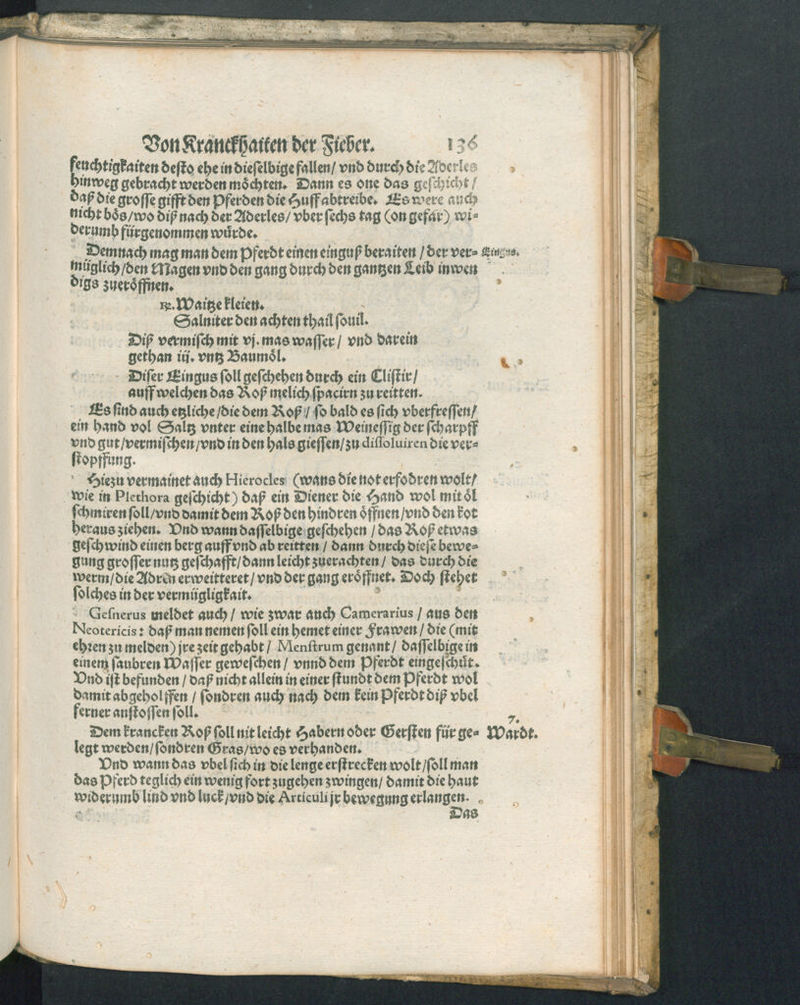 Von Kranckhaiten der Fieber. 136
feuchtigkaiten desto ehe in dieselbige fallen/ vnd durch die Aderles
hinweg gebracht werden möchten. Dann es one das geschicht/
daß die grosse gifft den Pferden die Huff abtreibe. Es were auch
nicht bös/wo diß nach der Aderles/ vber sechs tag (on gefär) wi-
derumb fürgenommen würde.
Demnach mag man dem Pferdt einen einguß beraiten / der ver-
Eingus.
müglich/den Magen vnd den gang durch den gantzen Leib inwen
digs zueröffnen.
℞. Waitze kleien.
Salniter den achten thail souil.
Diß vermisch mit vj. mas wasser/ vnd darein
gethan iij. vntz Baumöl.
Diser Eingus soll geschehen durch ein Clistir/
auff welchen das Roß melich spacirn zu reitten.
Es sind auch etzliche/die dem Roß/ so bald es sich vberfressen/
ein hand vol Saltz vnter eine halbe mas Weinessig der scharpff
vnd gut/vermischen/vnd in den hals giessen/zu dissoluiren die ver-
stopffung.
Hiezu vermainet auch Hierocles (wans die not erfodren wolt/
wie in Plethora geschicht) daß ein Diener die Hand wol mit öl
schmiren soll/vnd damit dem Roß den hindren öffnen/vnd den kot
heraus ziehen. Vnd wann dasselbige geschehen / das Roß etwas
geschwind einen berg auff vnd ab reitten / dann durch diese bewe-
gung grosser nutz geschafft/dann leicht zuerachten / das durch die
werm/die Adren erweitteret/ vnd der gang eröffnet. Doch stehet
solches in der vermügligkait.
Gesnerus meldet auch / wie zwar auch Camerarius / aus den
Neotericis: daß man nemen soll ein hemet einer Frawen/ die (mit
ehren zu melden) jre zeit gehabt / Menstrum genant/ dasselbige in
einem saubren Wasser geweschen/ vnnd dem Pferdt eingeschüt.
Vnd ist befunden / daß nicht allein in einer stundt dem Pferdt wol
damit abgeholffen / sondren auch nach dem kein Pferdt diß vbel
ferner anstossen soll.
7.
Dem krancken Roß soll nit leicht Habern oder Gersten für ge-
Wardt.
legt werden/sondren Gras/wo es verhanden.
Vnd wann das vbel sich in die lenge erstrecken wolt/soll man
das Pferd teglich ein wenig fort zugehen zwingen/ damit die haut
widerumb lind vnd luck/vnd die Articuli jr bewegung erlangen.
Das